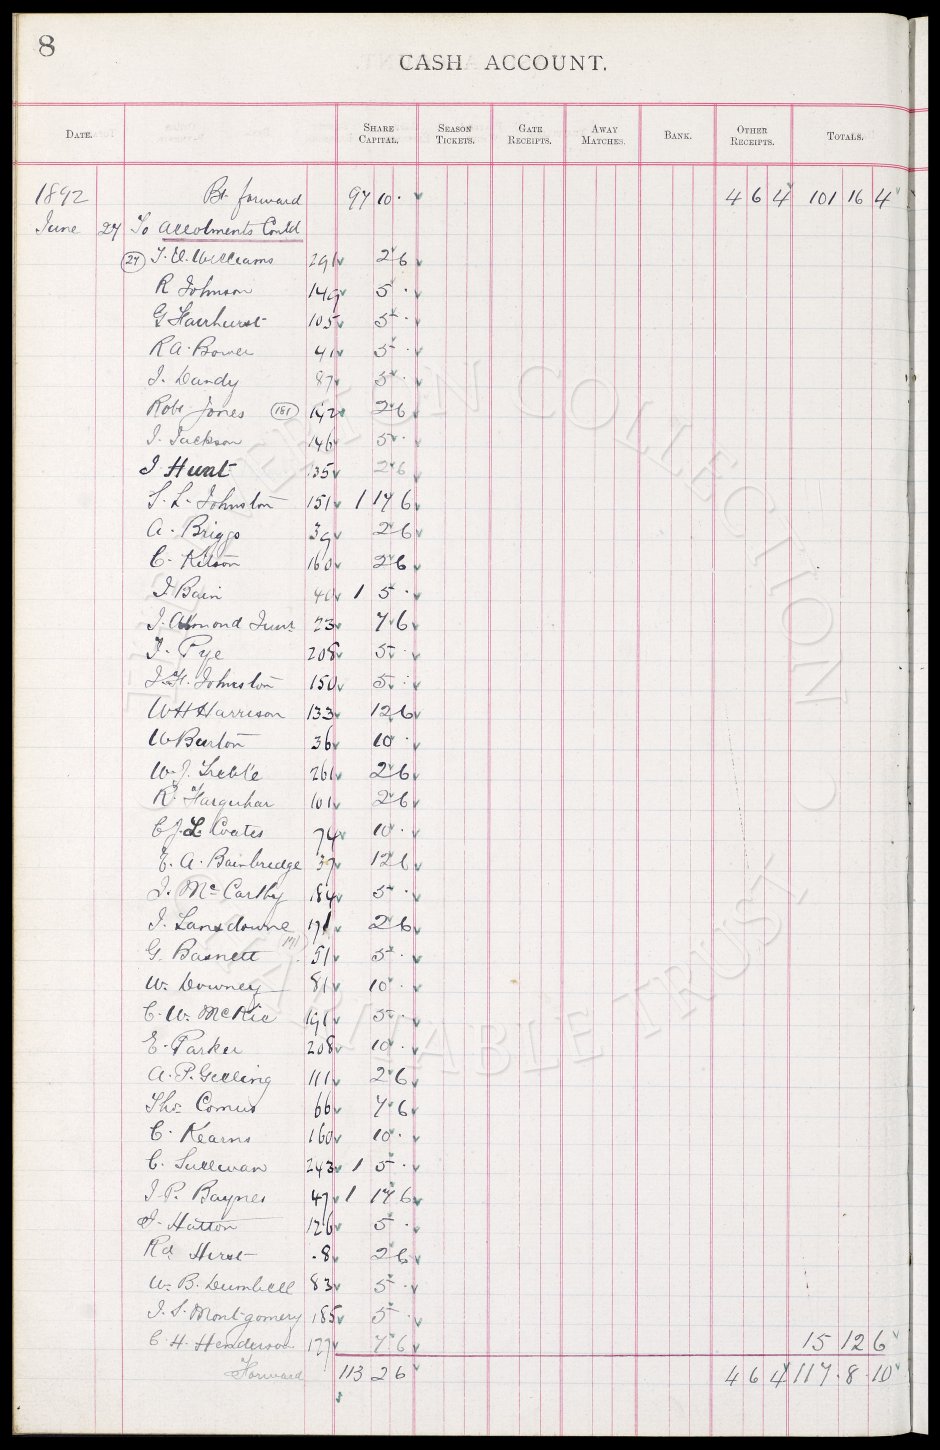 8
CASH ACCOUNT.
DATE. SHARE CAPITAL. SEASON TICKETS. GATE RECEIPTS. AWAY MATCHES. BANK. OTHER RECEIPTS. TOTALS.
1892 Bt. forward 97 10 · 4 6 4 101 16 4
June 27 To Allotments Contd
(27) J. H. Williams 291 2 6
R Johnson 149 5 ·
G Fairhurst 105 5 ·
R A. Bower 41 5 ·
J. Dandy 87 5 ·
Robt Jones (181) 142 2 6
J. Jackson 146 5 ·
J Hunt 135 2 6
S. L. Johnston 151 1 17 6
A. Briggs 39 2 6
C. Kitson 160 2 6
J. Bain 40 1 5 ·
J. Almond Junr 23 7 6
J. Pye 208 5 ·
J. H. Johnston 150 5 ·
W H Harrison 133 12 6
W Burton 36 10 ·
W. J. Treble 261 2 6
R. Farquhar 101 2 6
C J. L. Coates 74 10 ·
E. A. Bainbridge 37 12 6
J. Mc Carthy 184 5 ·
J. Lansdowne 171 2 6
G. Basnett 51 5 ·
W. Downey 81 10 ·
C. W. McKie 191 5 ·
E. Parker 208 10 ·
A. P. Gelling 111 2 6
Thos Comus 66 7 6
C. Kearns 160 10 ·
C. Sullivan 243 1 5 ·
J. P. Baynes 47 1 17 6
J. Hatton 126 5 ·
Rd. Hirst ·8 2 6
W. B. Dumbell 83 5 ·
J. S. Montgomery 185 5 ·
C. H. Henderson 127 7 6 15 12 6
Forward 113 2 6 4 6 4 117 · 8 · 10
EVERTON COLLECTION
CHARITABLE TRUST